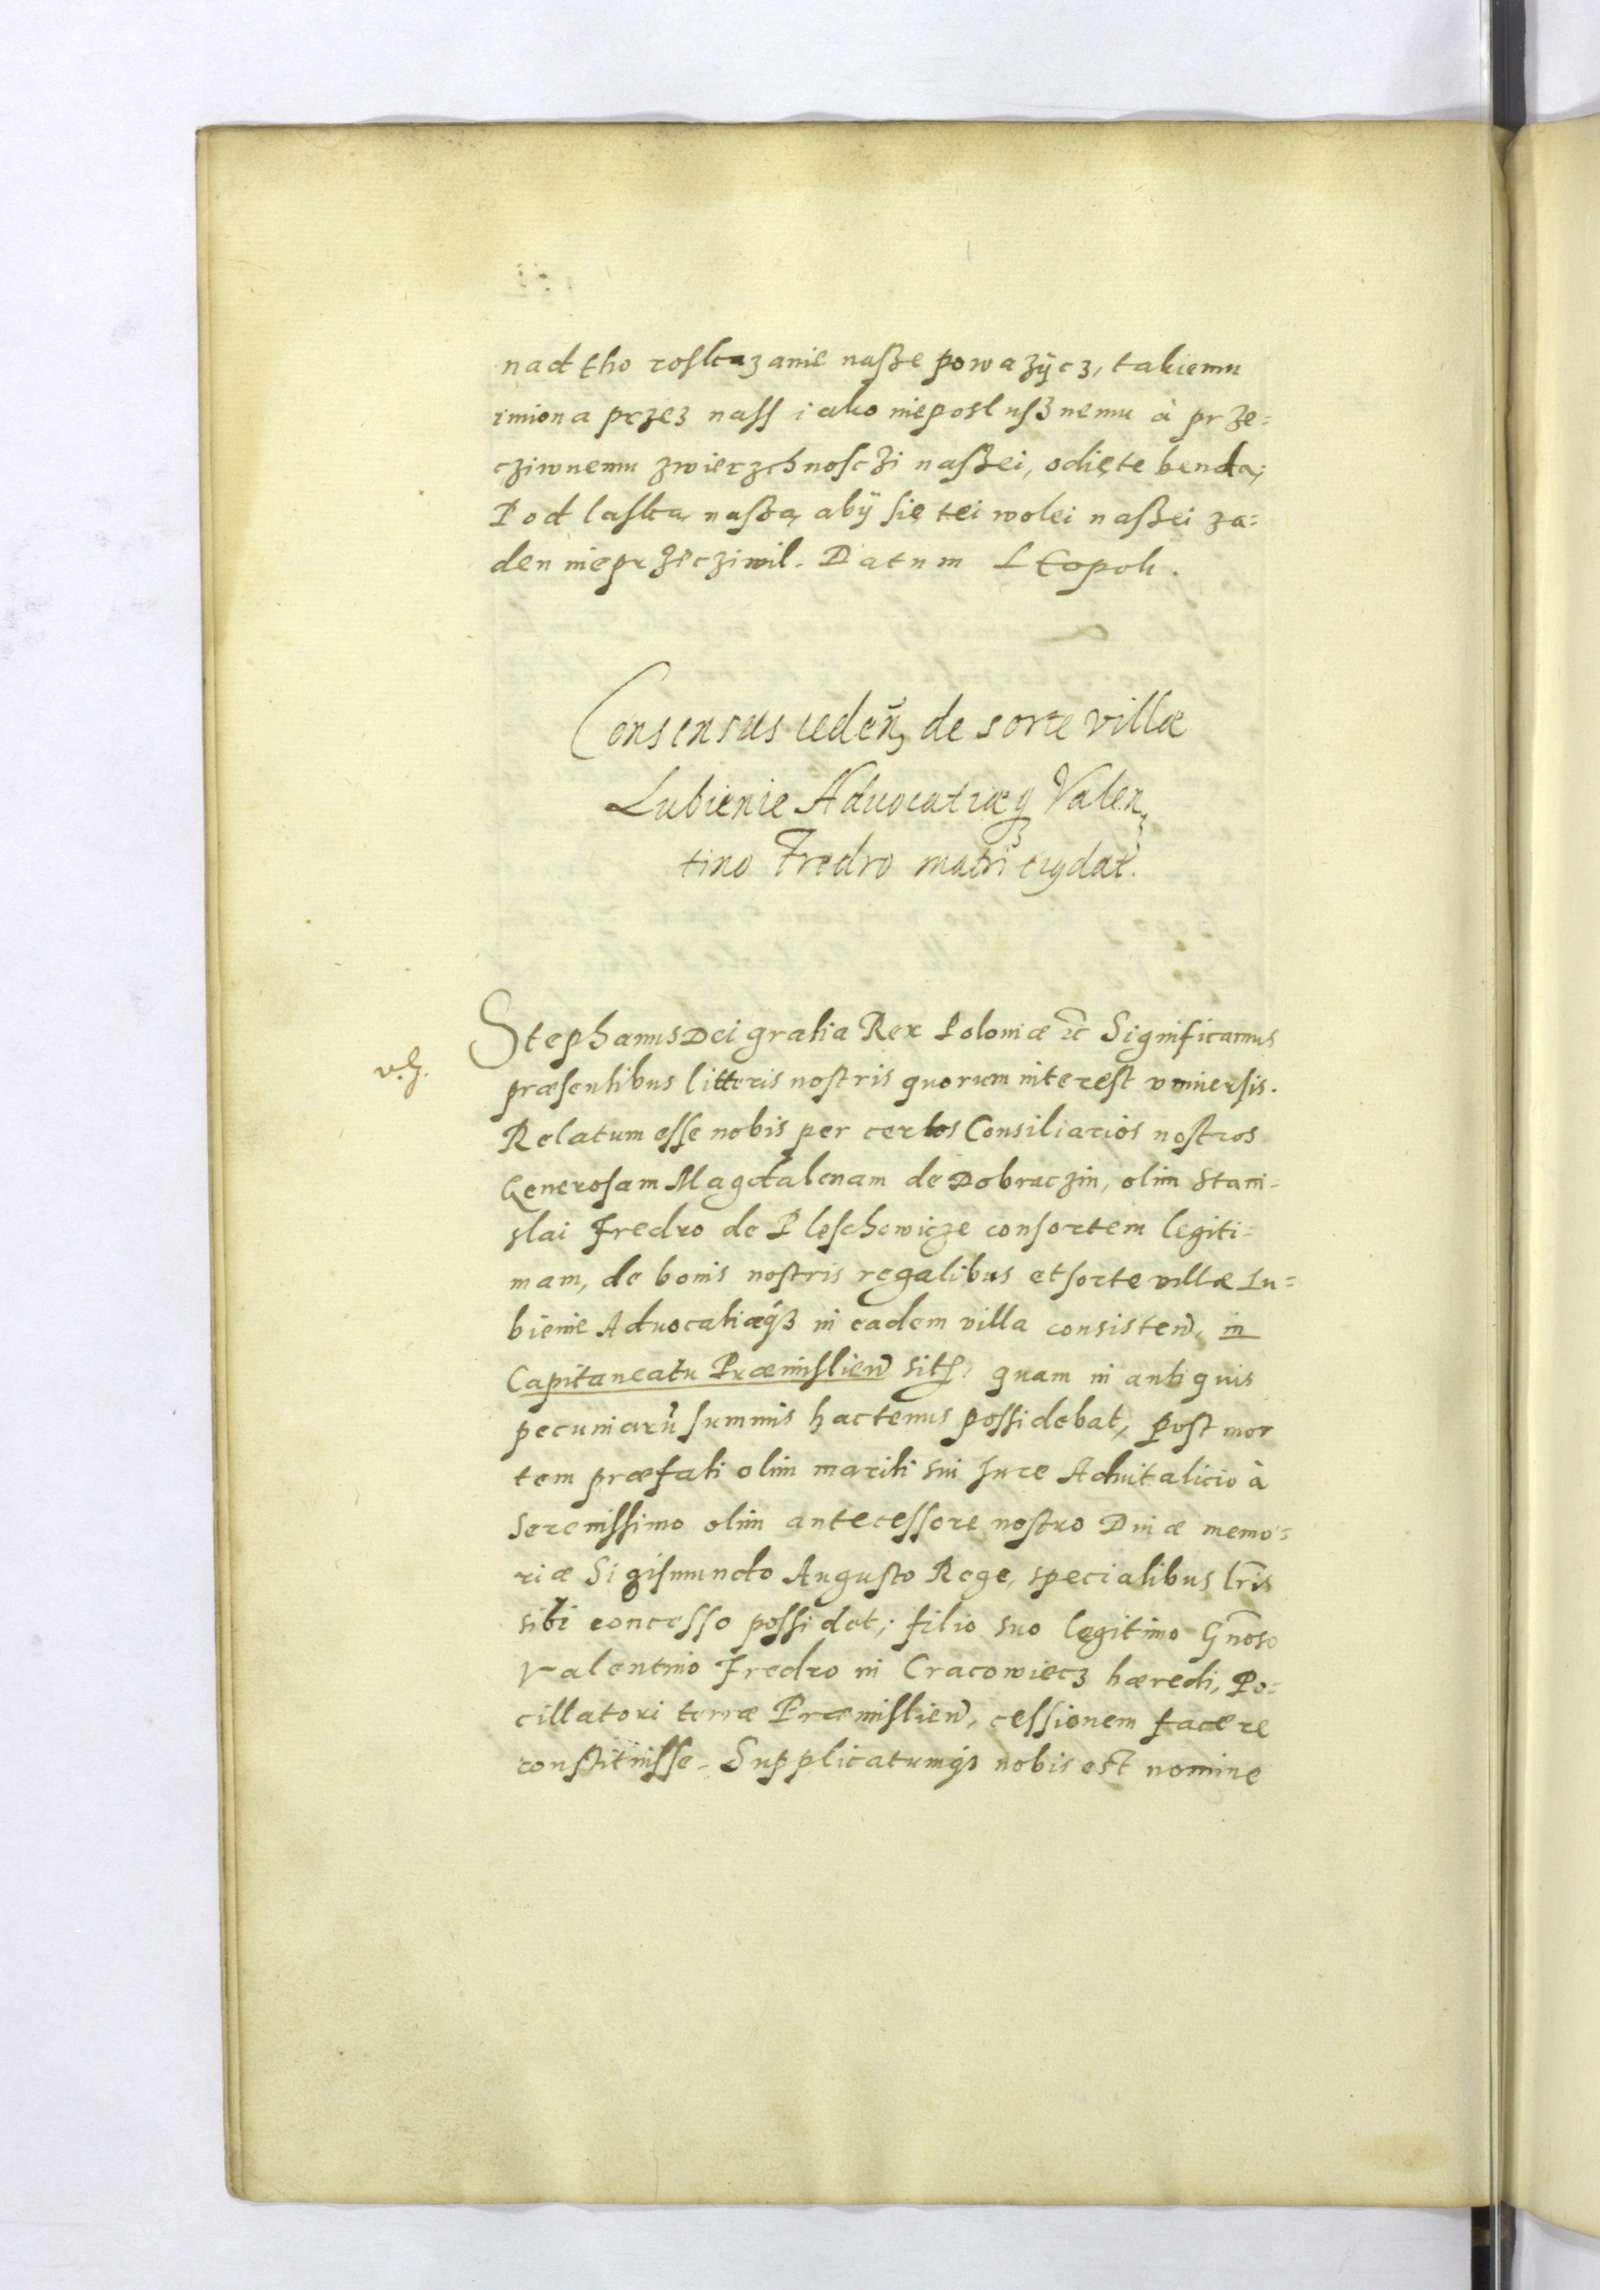 nad tho roskazanie nasze powazÿcz, takiemu
imiona przez nass iako nieposlusznemu à prze=
cziwnemu zwierzchnosczi naszei, odięte benda;
Pod laską naszą abÿ się tei wolei naszei za=
den nieprzecziwil. Datum Leopoli.
Consensus ceden̄, de sorte villæ
Lubienie Advocatiæq₃ Valen,
tino Fredro matri eiq dat.
v. z.
Stephanus Dei gratia Rex Poloniæ ꝛc̄ Significamus
præsentibus litteris nostris quorum interest vniuersis.
Relatum esse nobis per certos Consiliarios nostros
Generosam Magdalenam de Dobraczin, olim Stani-
slai Fredro de Pleschowicze consortem legiti-
mam, de bonis nostris regalibus et sorte villæ Lu=
bienie Aduocatiæq₃ in eadem villa consisten̄, in
Capitaneatu Præmislien̄ sitꝭ, quam in antiquis
pecuniarū summis hactenus possidebat, Post mor
tem præfati olim mariti sui Jure Aduitalicio à
Serenissimo olim antecessore nostro Diuæ memo=
riæ Sigismundo Augusto Rege, specialibus lr̄is
sibi concesso possidet; filio suo legitimo Gn̄oso
Valentino Fredro in Cracowiecz hæredi, Po=
cillatori terræ Præmislien̄, cessionem facere
constituisse. Supplicatumq₃ nobis est nomine